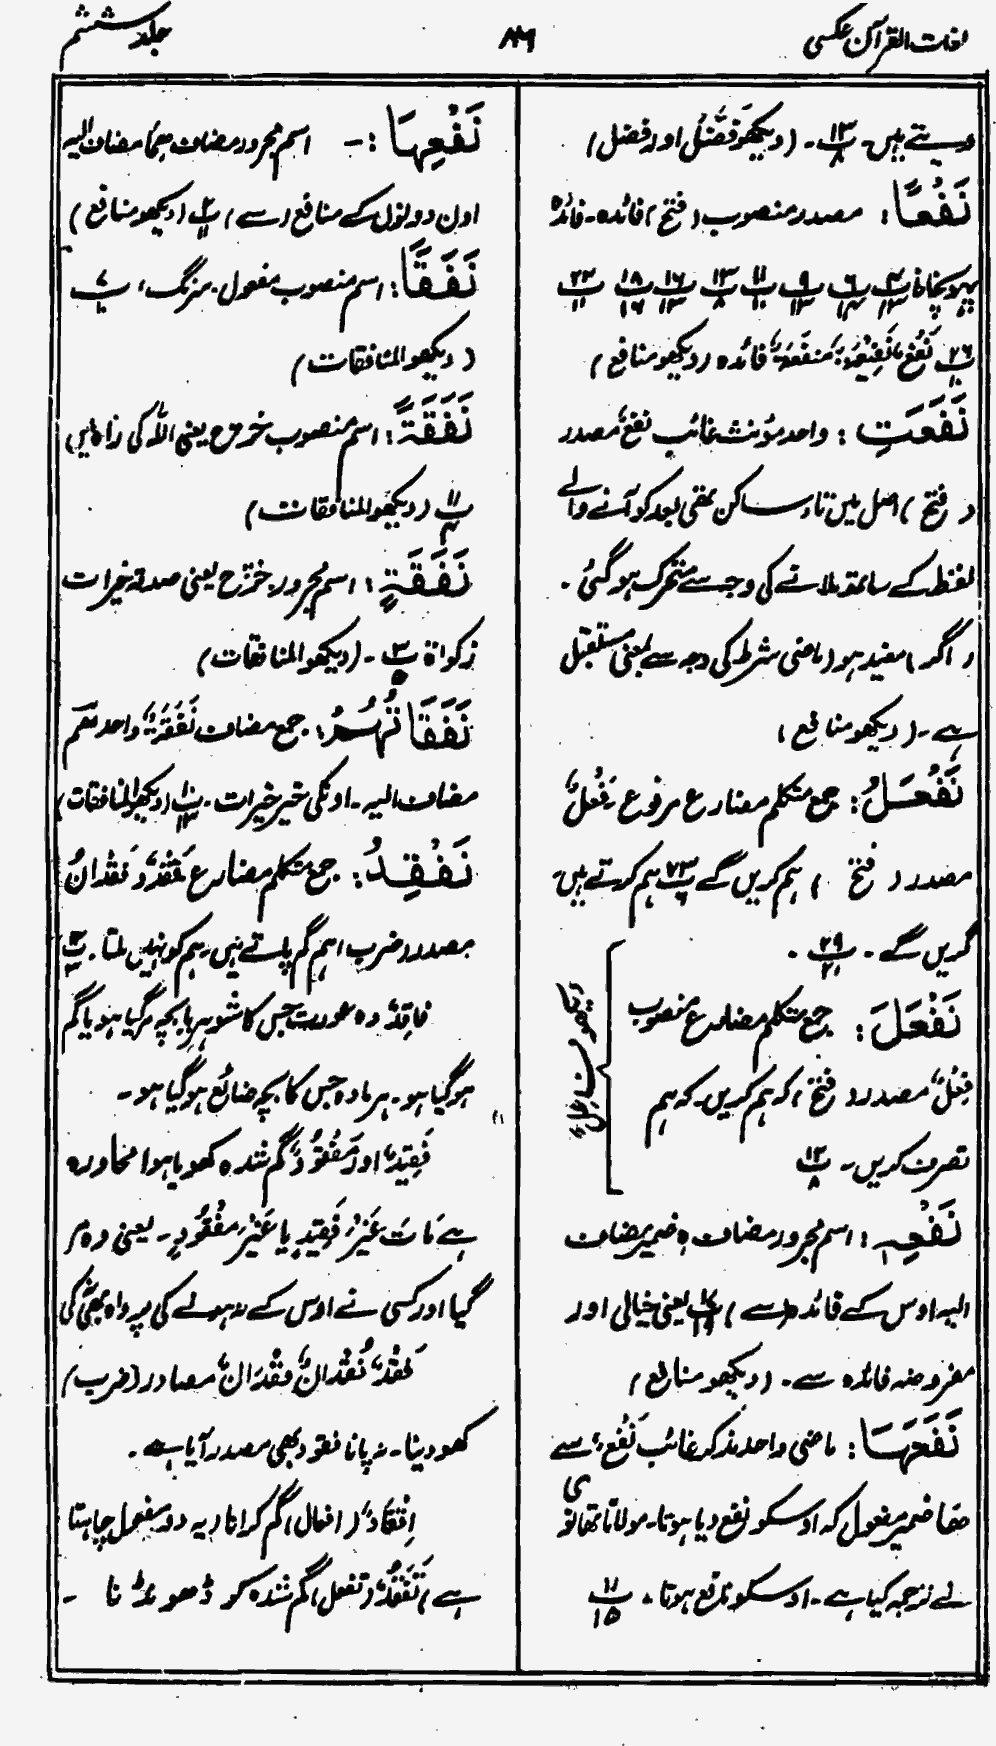 لغات القرآن عکسی
۸۹
جلد ششم
دیتے ہیں۔ پ ۱۳/۸ ۔ (دیکھو فَضَّلَ اور فضل)
نَفْعًا: مصدر منصوب (فتح) فائدہ۔ فائدہ
پہونچانا
نَفْعٌ نَفِیْعَۃٌ مَنْفَعَۃٌ فائدہ (دیکھو منافع)
نَفَعَتِ: واحد مؤنث غائب نَفْعٌ مصدر
(فتح) اصل میں تاء ساکن تھی بعد کو آنے والے
لفظ کے ساتھ ملانے کی وجہ سے متحرک ہوگئی۔
(اگر) مفید ہو (ماضی شرط کی وجہ سے بمعنی مستقبل
ہے۔ (دیکھو منافع)
نَفْعَلُ: جمع متکلم مضارع مرفوع فِعْلٌ
مصدر (فتح) ہم کریں گے پ ہم کرتے ہیں
کریں گے۔ پ ۲۹/۲۱ ۔
نَفْعَلَ: جمع متکلم مضارع منصوب
فِعْلٌ مصدر (فتح) کہ ہم کریں۔ کہ ہم
تصرف کریں۔ پ ۱۲/۸
نَفْعِہٖ: اسم مجرور مضاف ہ ضمیر مضاف
الیہ اوس کے فائدہ (سے) پ یعنی خیالی اور
مفروضہ فائدہ سے۔ (دیکھو منافع)
نَفَعَہَا: ماضی واحد مذکر غائب نَفْعٌ سے
ھا ضمیر مفعول کہ اوسکو نفع دیا ہوتا۔ مولانا تھانوی
نے ترجمہ کیا ہے۔ اوسکو نافع ہوتا، پ ۱۱/۱۵
نَفْعِہِمَا:۔ اسم مجرور مضاف ہما مضاف الیہ
اون دونوں کے منافع (سے) پ ۲/۱۱ (دیکھو منافع)
نَفَقًا: اسم منصوب مفعول۔ سرنگ، پ
(دیکھو المنافقات)
نَفَقَۃً: اسم منصوب خرچ یعنی اللہ کی راہ میں
پ ۱۱/۴ (دیکھو المنافقات)
نَفَقَۃٍ: اسم مجرور۔ خرچ یعنی صدقہ خیرات
زکواۃ پ ۳/۵ ۔ (دیکھو المنافقات)
نَفَقَاتُہُمْ: جمع مضاف نَفَقَۃٌ واحد ہم
مضاف الیہ۔ اونکی خیر خیرات۔ پ ۱۰/۱۳ (دیکھو المنافقات)
نَفْقِدُ: جمع متکلم مضارع فَقْدٌ و فُقْدانٌ
مصدر (ضرب) ہم گم پاتے ہیں۔ ہم کو نہیں ملتا۔ پ
فَاقِدٌ وہ عورت جس کا شوہر یا بچہ مر گیا ہو یا گم
ہو گیا ہو۔ ہر مادہ جس کا بچہ ضائع ہو گیا ہو۔
فَقِیْدٌ اور مَفْقُوْدٌ گم شدہ کھویا ہوا محاورہ
ہے مَاتَ غَیْرُ فَقِیْدٍ یا غَیْرُ مَفْقُوْدٍ۔ یعنی وہ مر
گیا اور کسی نے اوس کے نہ ہونے کی پرواہ بھی نہ کی
فَقْدٌ فُقْدَانٌ فِقْدَانٌ مصادر (ضرب)
کھو دینا۔ نہ پانا فقود بھی مصدر آیا ہے۔
اِفْقَادٌ (افعال) گم کرانا (یہ دو مفعول چاہتا
ہے) تَفَقُّدٌ (تفعل) گم شدہ کو ڈھونڈنا ۔